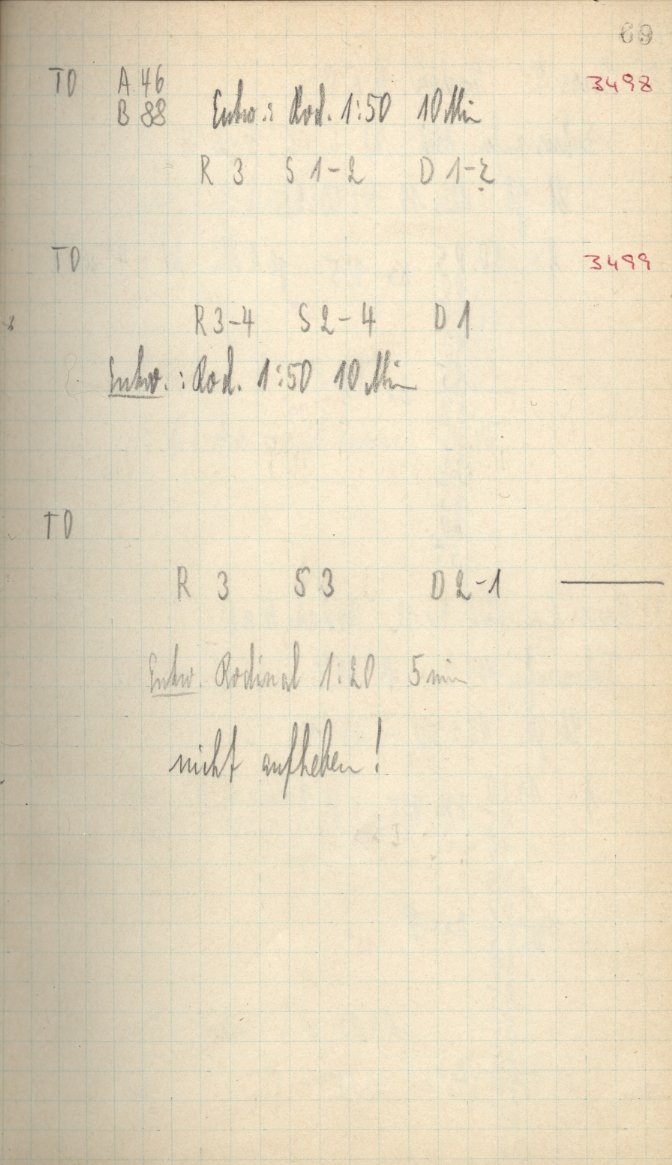 69
TD A 46 3498
B 88 Entw.: Rod. 1:50 10 Min
R 3 S 1-2 D 1-2
TD 3499
R 3-4 S 2-4 D 1
Entw.: Rod. 1:50 10 Min
TD
R 3 S 3 D 2-1 —
Entw. Rodinal 1:20 5 min
nicht aufheben!